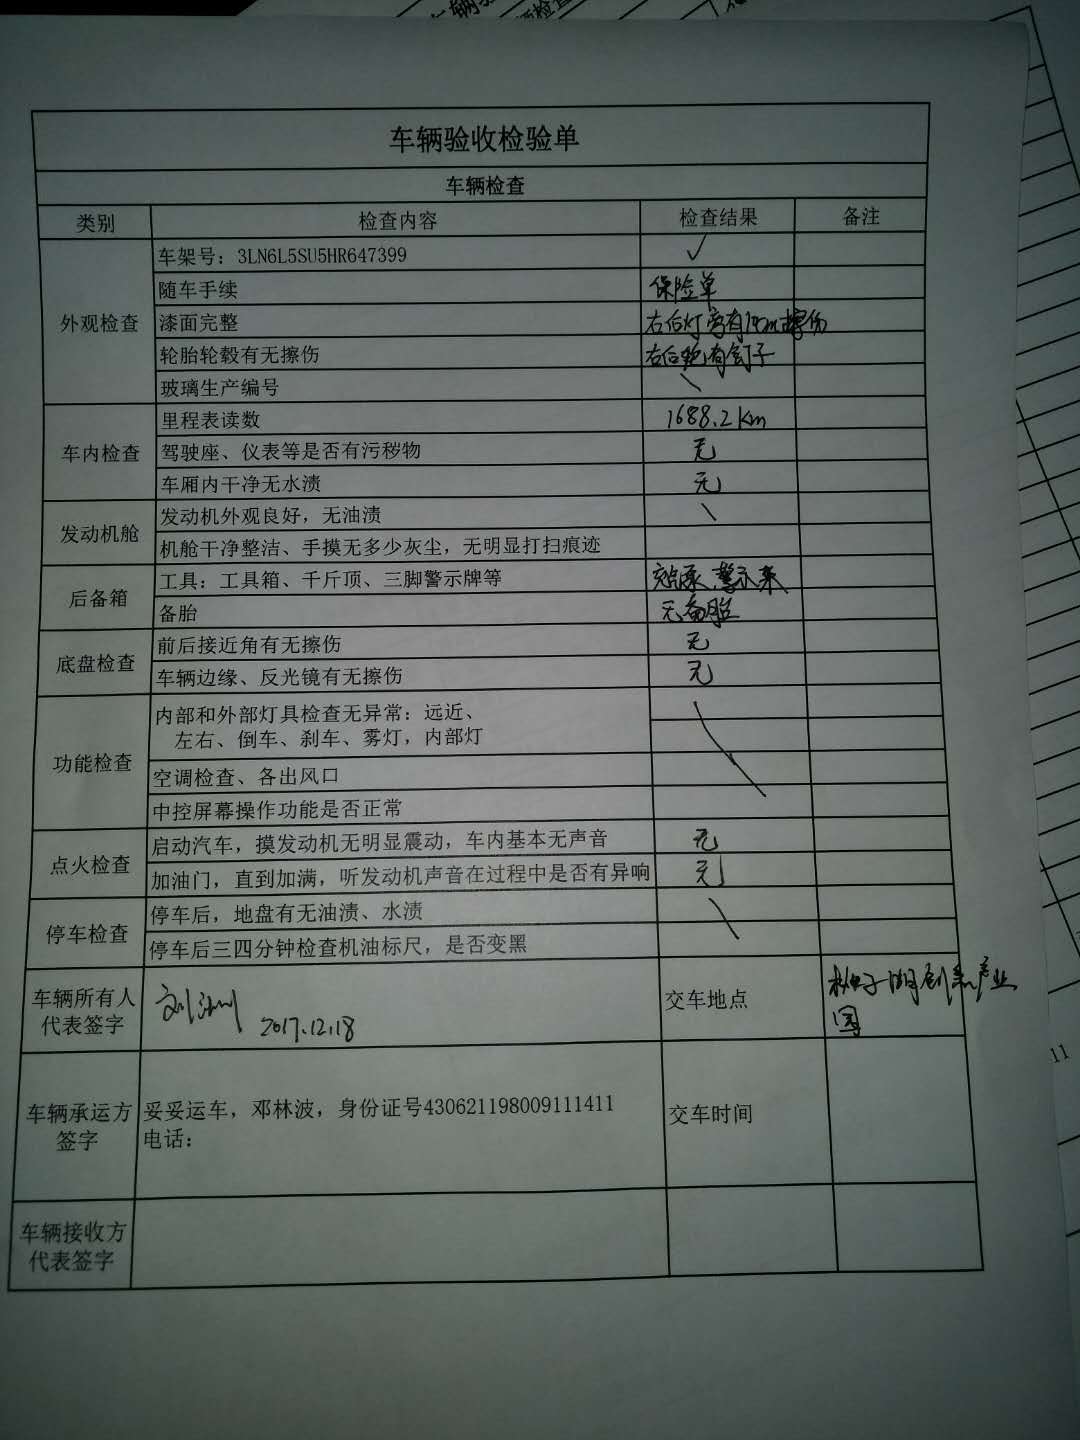 车辆验收检验单
车辆检查
类别 检查内容 检查结果 备注
外观检查
车架号：3LN6L5SU5HR647399 ✓
随车手续 保险单
漆面完整 右后灯旁有1cm擦伤
轮胎轮毂有无擦伤 右后轮有钉子
玻璃生产编号 \
车内检查
里程表读数 1688.2km
驾驶座、仪表等是否有污秽物 无
车厢内干净无水渍 无
发动机舱
发动机外观良好，无油渍 \
机舱干净整洁、手摸无多少灰尘，无明显打扫痕迹
后备箱
工具：工具箱、千斤顶、三脚警示牌等
备胎 无备胎
底盘检查
前后接近角有无擦伤 无
车辆边缘、反光镜有无擦伤 无
功能检查
内部和外部灯具检查无异常：远近、
左右、倒车、刹车、雾灯，内部灯
空调检查、各出风口
中控屏幕操作功能是否正常
点火检查
启动汽车，摸发动机无明显震动，车内基本无声音 无
加油门，直到加满，听发动机声音在过程中是否有异响 无
停车检查
停车后，地盘有无油渍、水渍
停车后三四分钟检查机油标尺，是否变黑
车辆所有人
代表签字
2017.12.18
交车地点
柚子湖创新产业
园
车辆承运方
签字
妥妥运车，邓林波，身份证号430621198009111411
电话：
交车时间
车辆接收方
代表签字
11